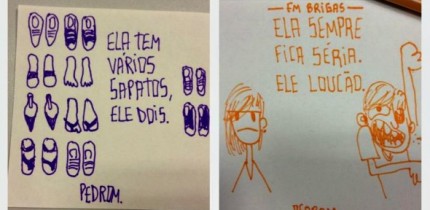 ELA TEM
VÁRIOS
SAPATOS,
ELE DOIS.
PEDRIM.
EM BRIGAS
ELA SEMPRE
FICA SÉRIA.
ELE LOUCÃO.